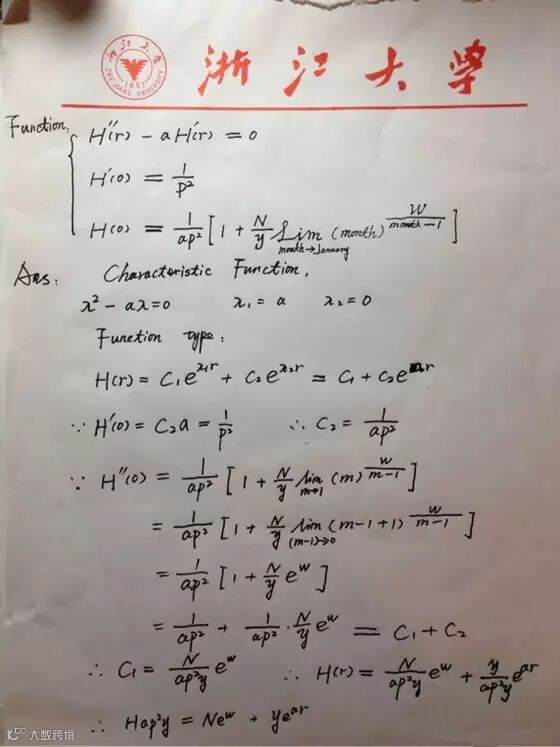 浙江大学
ZHEJIANG UNIVERSITY
1897
Function:
H''(r) - aH'(r) = 0
H'(0) = 1/p²
H(0) = 1/ap² [1 + N/y Lim_{month→January} (month)^{W/month-1}]
Ans: Characteristic Function,
λ² - aλ = 0 λ₁ = a λ₂ = 0
Function type:
H(r) = C₁e^{λ₁r} + C₂e^{λ₂r} = C₁ + C₂e^{ar}
∵ H'(0) = C₂a = 1/p² ∴ C₂ = 1/ap²
∵ H''(0) = 1/ap² [1 + N/y lim_{m→1} (m)^{w/m-1}]
= 1/ap² [1 + N/y lim_{(m-1)→0} (m-1+1)^{w/m-1}]
= 1/ap² [1 + N/y e^w]
= 1/ap² + 1/ap² · N/y e^w = C₁ + C₂
∴ C₁ = N/ap²y e^w ∴ H(r) = N/ap²y e^w + y/ap²y e^{ar}
∴ Hap²y = Ne^w + ye^{ar}
大数跨境